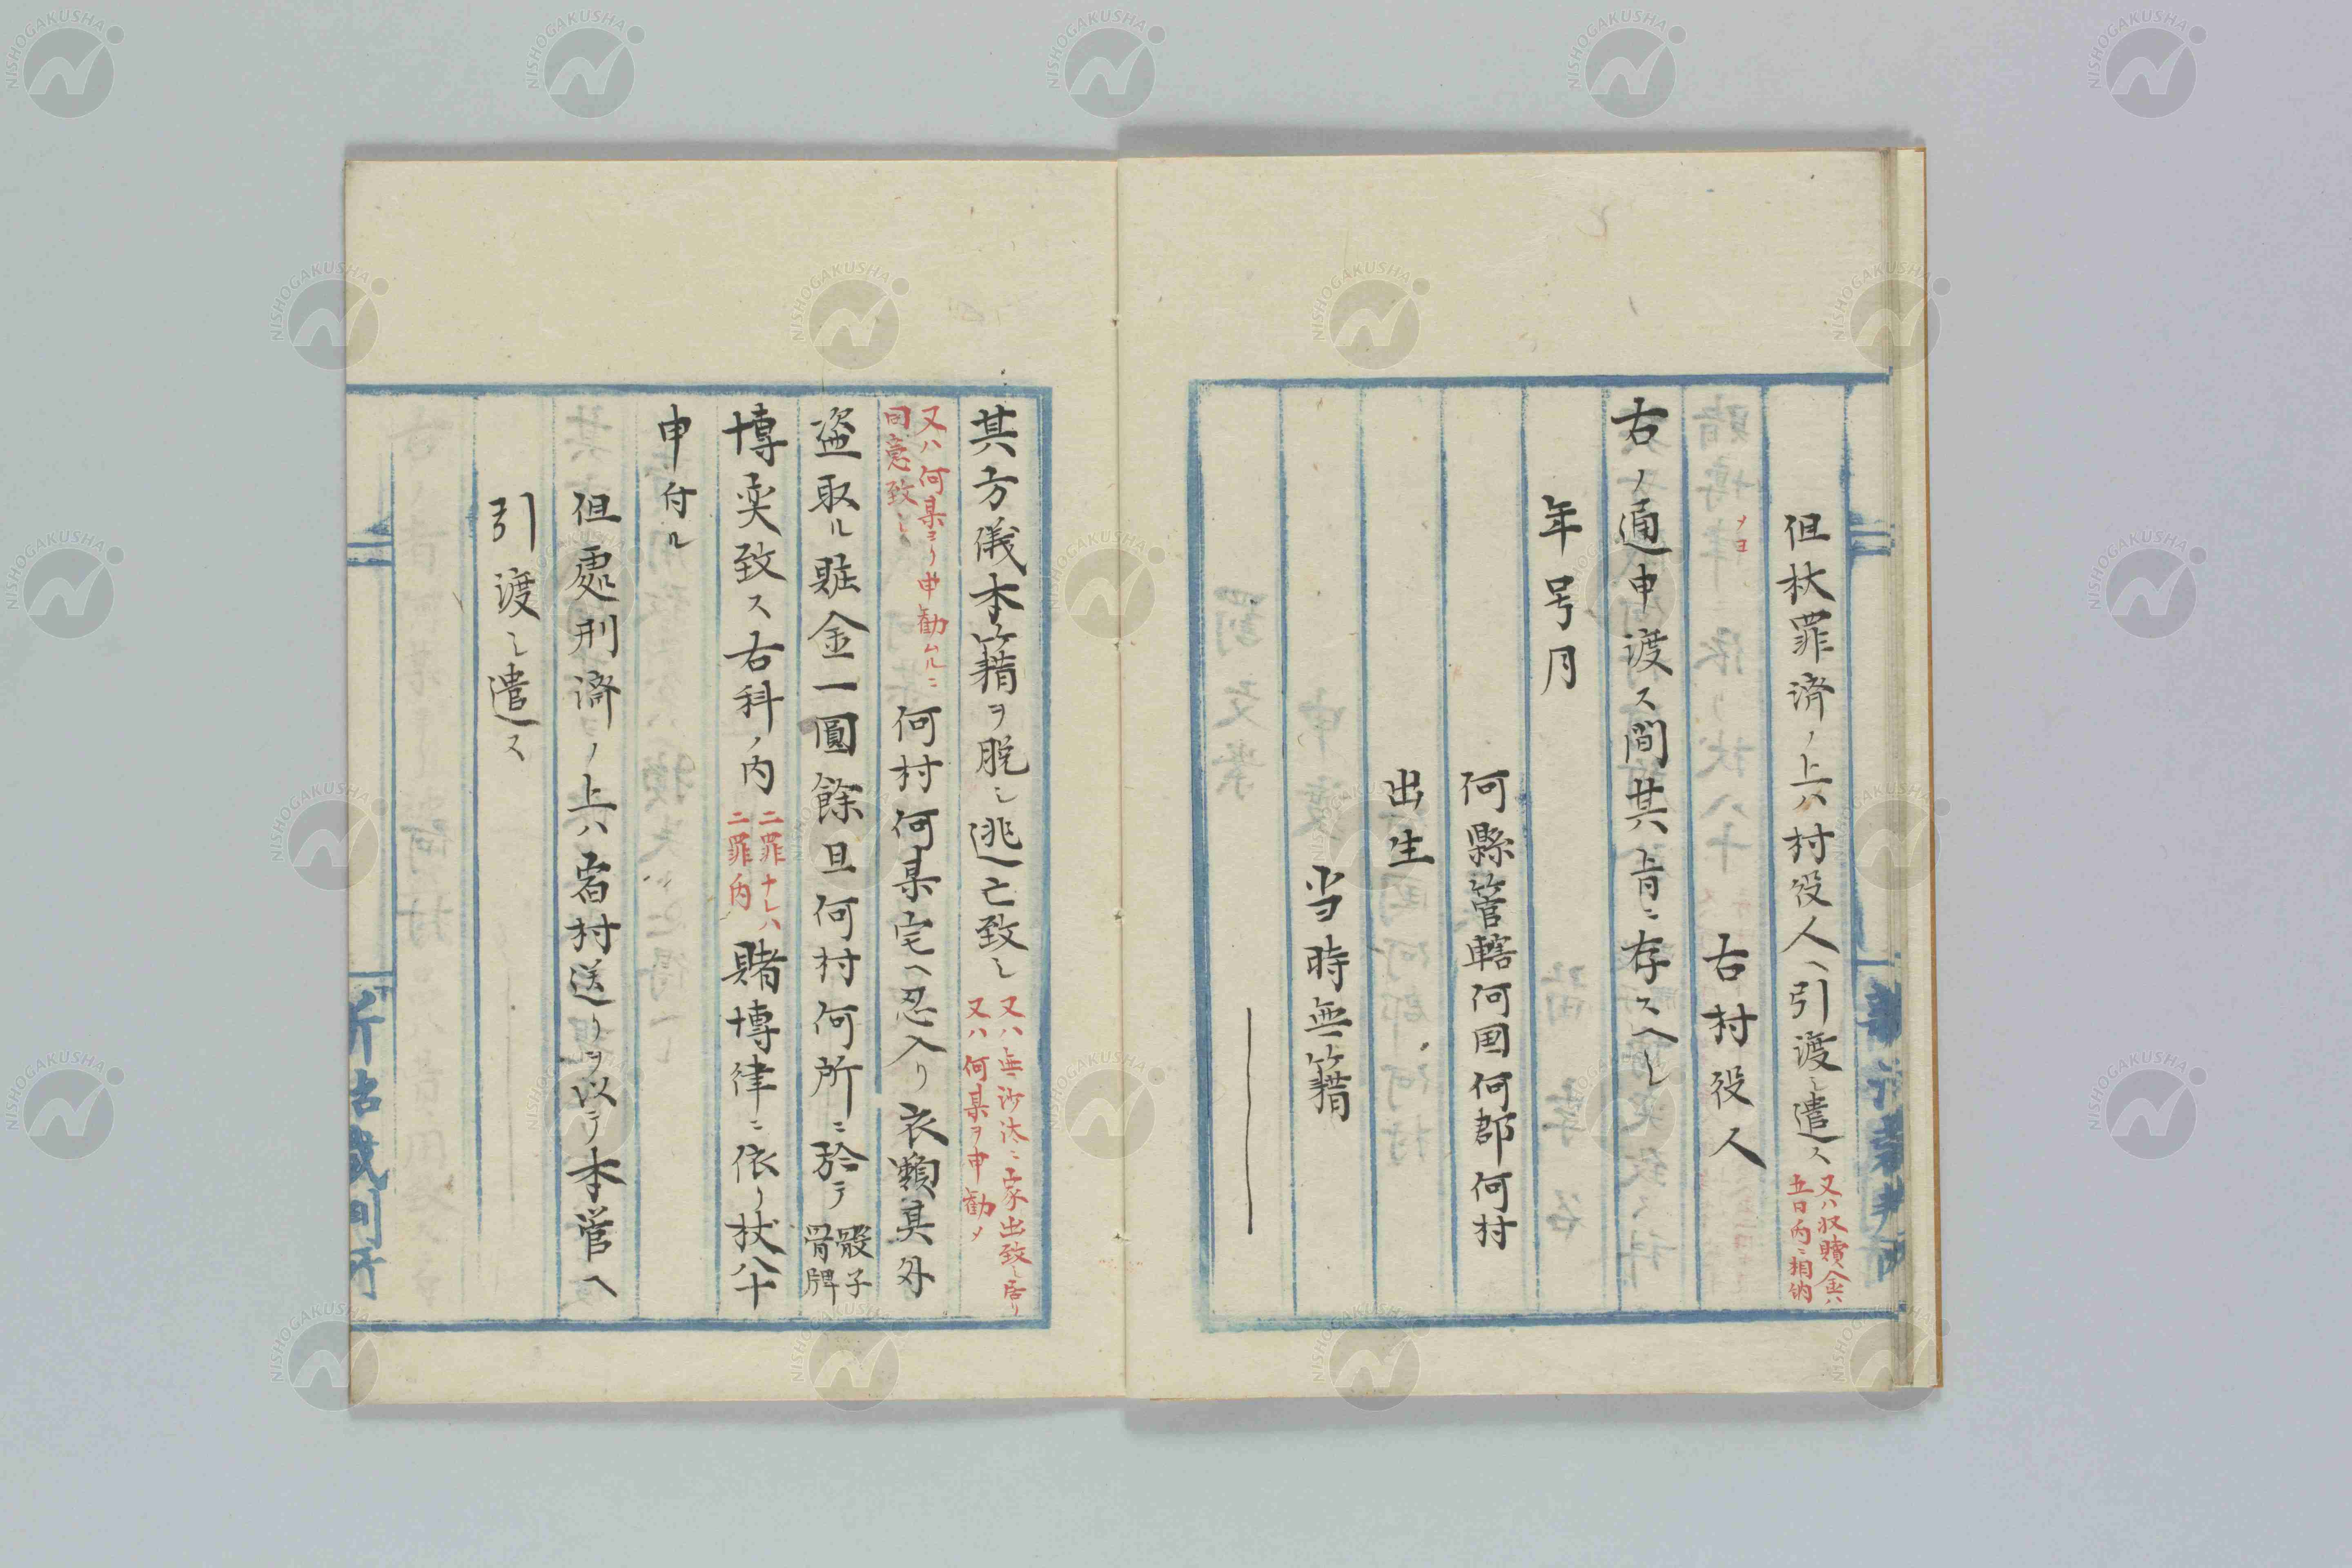 但杖罪済ノ上ハ村役人ヘ引渡シ遣ス
又ハ収贖金ハ
五日内ニ相納
メヨ
右村役人
右ノ通申渡ス間其旨ニ存スヘシ
年号月
何縣管轄何国何郡何村
出生
当時無籍
其方儀本籍ヲ脱シ逃亡致シ
又ハ無沙汰ニ家出致シ居リ
又ハ何某ヲ申勧メ
又ハ何某ヨリ申勧ムルニ
同意致シ
何村何某宅ヘ忍入リ衣類其外
盗取ル賍金一圓餘且何村何所ニ於テ
骰子
骨牌
博奕致ス右科ノ内
二罪ナレハ
二罪内
賭博律ニ依リ杖八十
申付ル
但處刑済ノ上ハ宿村送リヲ以テ本管ヘ
引渡シ遣ス
NISHOGAKUSHA